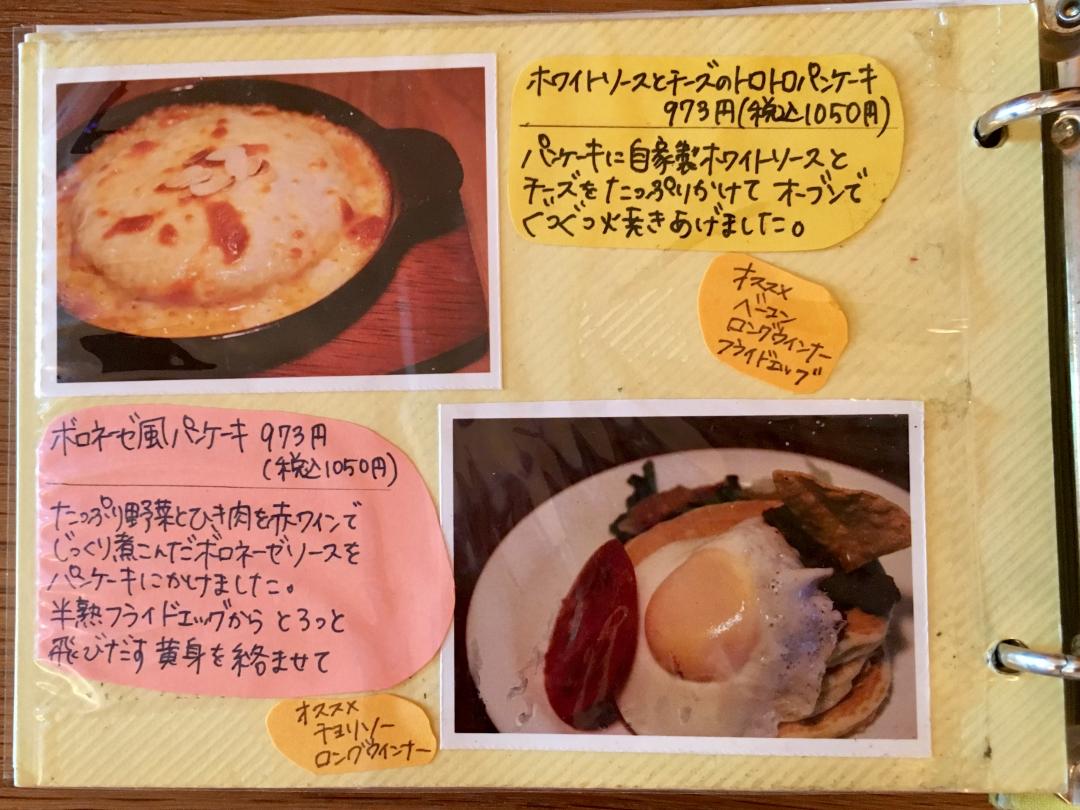 ホワイトソースとチーズのトロトロパンケーキ
973円(税込1050円)
パンケーキに自家製ホワイトソースと
チーズをたっぷりかけて オーブンで
ぐつぐつ火焼きあげました。
オススメ
ベーコン
ロングウィンナー
フライドエッグ
ボロネーゼ風パンケーキ 973円
(税込1050円)
たっぷり野菜とひき肉を赤ワインで
じっくり煮こんだボロネーゼソースを
パンケーキにかけました。
半熟フライドエッグから とろっと
飛びだす 黄身を絡ませて
オススメ
チョリソー
ロングウィンナー